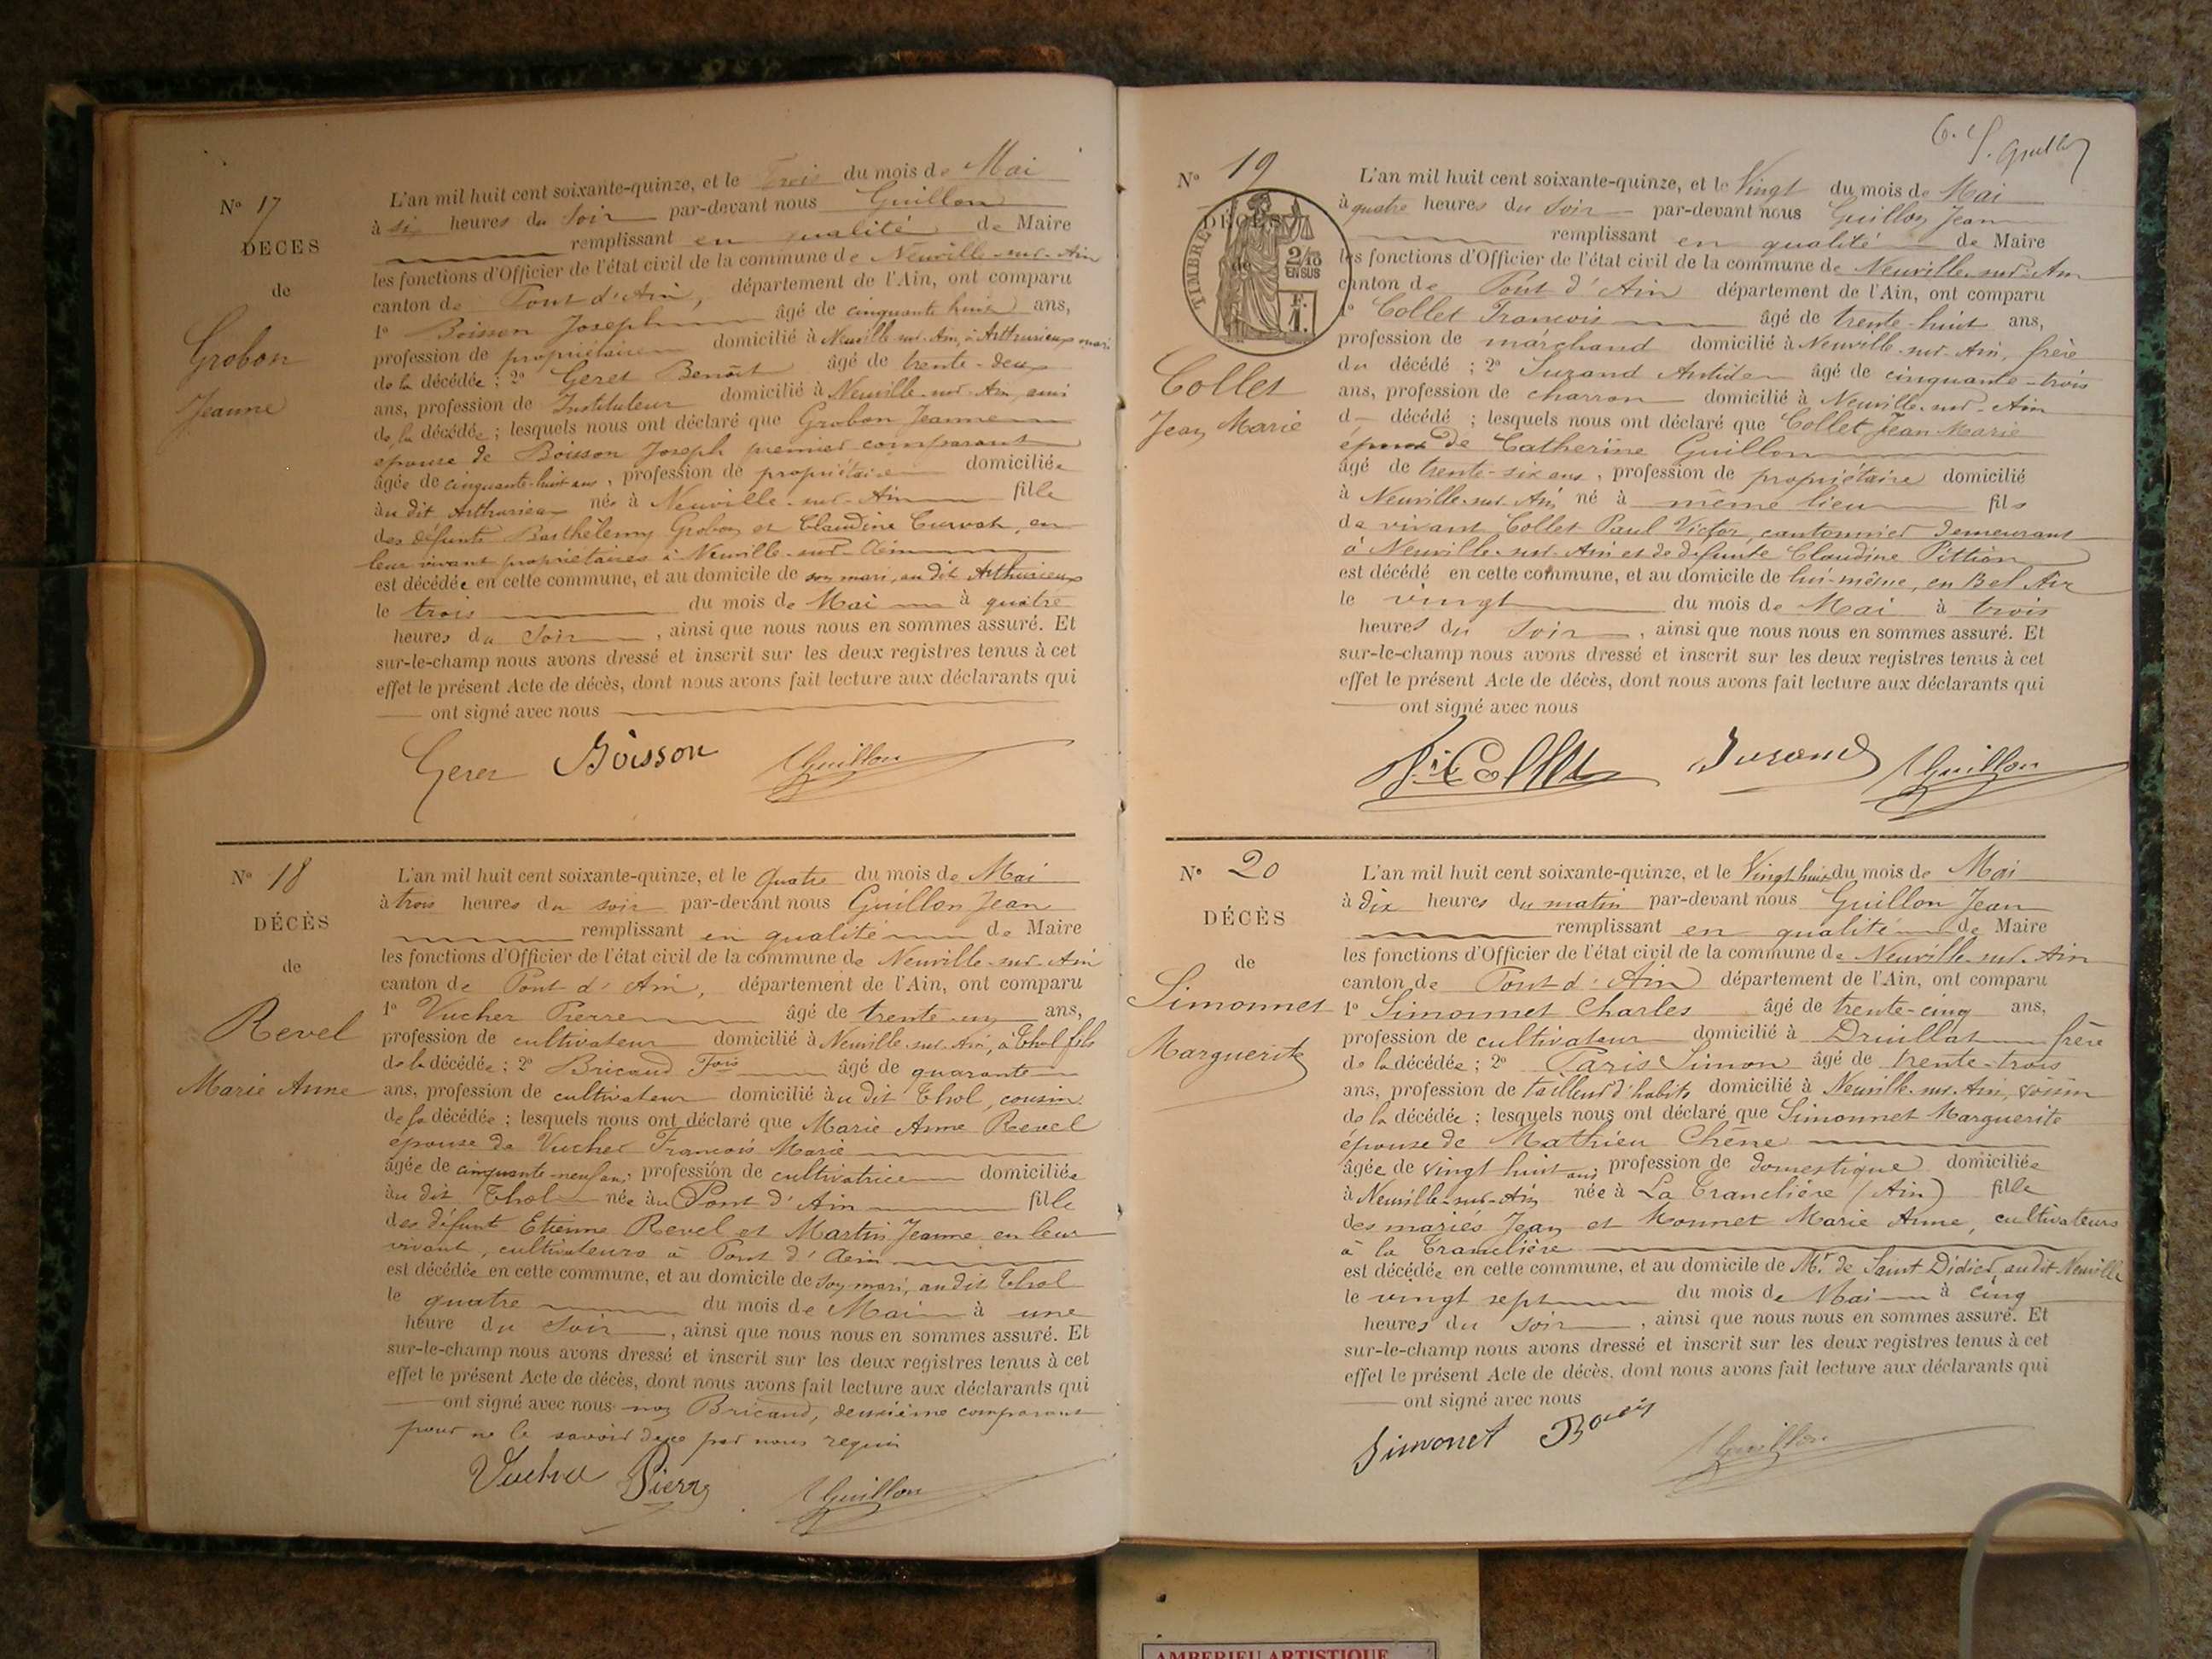 Nº 17
DÉCÈS
de
Grobon
Jeanne
L'an mil huit cent soixante-quinze, et le Trois du mois de Mai
à six heures du Soir par-devant nous Guillon
remplissant en qualité de Maire
les fonctions d'Officier de l'état civil de la commune de Neuville-sur-Ain
canton de Pont d'Ain, département de l'Ain, ont comparu
1º Boisson Joseph âgé de cinquante huit ans,
profession de propriétaire domicilié à Neuville-sur-Ain, à Arthurieux mari
de la décédée : 2º Geret Benoît âgé de trente-deux
ans, profession de Instituteur domicilié à Neuville-sur-Ain, ami
de la décédée ; lesquels nous ont déclaré que Grobon Jeanne
épouse de Boisson Joseph premier comparant
âgée de cinquante-huit ans, profession de propriétaire domiciliée
au dit Arthurieux née à Neuville-sur-Ain fille
des défunts Barthélemy Grobon et Claudine Curvat, en
leur vivant propriétaires à Neuville-sur-Ain
est décédée en cette commune, et au domicile de son mari, au dit Arthurieux
le trois du mois de Mai à quatre
heures du Soir, ainsi que nous nous en sommes assuré. Et
sur-le-champ nous avons dressé et inscrit sur les deux registres tenus à cet
effet le présent Acte de décès, dont nous avons fait lecture aux déclarants qui
ont signé avec nous
Geret Boisson Guillon
Nº 18
DÉCÈS
de
Revel
Marie Anne
L'an mil huit cent soixante-quinze, et le Quatre du mois de Mai
à trois heures du soir par-devant nous Guillon Jean
remplissant en qualité de Maire
les fonctions d'Officier de l'état civil de la commune de Neuville-sur-Ain
canton de Pont d'Ain, département de l'Ain, ont comparu
1º Vucher Pierre âgé de trente-un ans,
profession de cultivateur domicilié à Neuville-sur-Ain, à Thol fils
de la décédée ; 2º Bricaud Fois âgé de quarante
ans, profession de cultivateur domicilié au dit Thol, cousin
de la décédée ; lesquels nous ont déclaré que Marie Anne Revel
épouse de Vucher François Marie
âgée de cinquante-neuf ans, profession de cultivatrice domiciliée
au dit Thol née à Pont d'Ain fille
des défunt Etienne Revel et Martin Jeanne en leur
vivant, cultivateurs à Pont d'Ain
est décédée en cette commune, et au domicile de son mari, au dit Thol
le quatre du mois de Mai à une
heure du Soir, ainsi que nous nous en sommes assuré. Et
sur-le-champ nous avons dressé et inscrit sur les deux registres tenus à cet
effet le présent Acte de décès, dont nous avons fait lecture aux déclarants qui
ont signé avec nous non Bricaud, deuxième comparant
pour ne le savoir de ce par nous requis
Vucher Pierre Guillon
Nº 19
DÉCÈS
de
TIMBRE
2/10
EN SUS
F.
1.
Collet
Jean Marie
L'an mil huit cent soixante-quinze, et le Vingt du mois de Mai
à quatre heures du Soir par-devant nous Guillon Jean
remplissant en qualité de Maire
les fonctions d'Officier de l'état civil de la commune de Neuville-sur-Ain
canton de Pont d'Ain département de l'Ain, ont comparu
1º Collet François âgé de trente-huit ans,
profession de marchand domicilié à Neuville-sur-Ain, frère
du décédé ; 2º Suzand Antide âgé de cinquante-trois
ans, profession de charron domicilié à Neuville-sur-Ain
d décédé ; lesquels nous ont déclaré que Collet Jean Marie
époux de Catherine Guillon
âgé de trente-six ans, profession de propriétaire domicilié
à Neuville-sur-Ain né à même lieu fils
de vivant Collet Paul Victor, cantonnier demeurant
à Neuville-sur-Ain et de défunte Claudine Pittion
est décédé en cette commune, et au domicile de lui-même, en Bel Air
le vingt du mois de Mai à trois
heures du Soir, ainsi que nous nous en sommes assuré. Et
sur-le-champ nous avons dressé et inscrit sur les deux registres tenus à cet
effet le présent Acte de décès, dont nous avons fait lecture aux déclarants qui
ont signé avec nous
Collet Suzand Guillon
Nº 20
DÉCÈS
de
Simonnet
Marguerite
L'an mil huit cent soixante-quinze, et le Vingt huit du mois de Mai
à dix heures du matin par-devant nous Guillon Jean
remplissant en qualité de Maire
les fonctions d'Officier de l'état civil de la commune de Neuville-sur-Ain
canton de Pont d'Ain département de l'Ain, ont comparu
1º Simonnet Charles âgé de trente-cinq ans,
profession de cultivateur domicilié à Druillat frère
de la décédée ; 2º Paris Simon âgé de trente-trois
ans, profession de tailleur d'habits domicilié à Neuville-sur-Ain, voisin
de la décédée ; lesquels nous ont déclaré que Simonnet Marguerite
épouse de Mathieu Chêne
âgée de vingt huit ans, profession de domestique domiciliée
à Neuville-sur-Ain née à La Tranclière (Ain) fille
des mariés Jean et Monnet Marie Anne, cultivateurs
à la Tranclière
est décédée en cette commune, et au domicile de Mr. de Saint Didier, au dit Neuville
le vingt sept du mois de Mai à cinq
heures du soir, ainsi que nous nous en sommes assuré. Et
sur-le-champ nous avons dressé et inscrit sur les deux registres tenus à cet
effet le présent Acte de décès, dont nous avons fait lecture aux déclarants qui
ont signé avec nous
Simonet Paris Guillon
AMBERIEU ARTISTIQUE